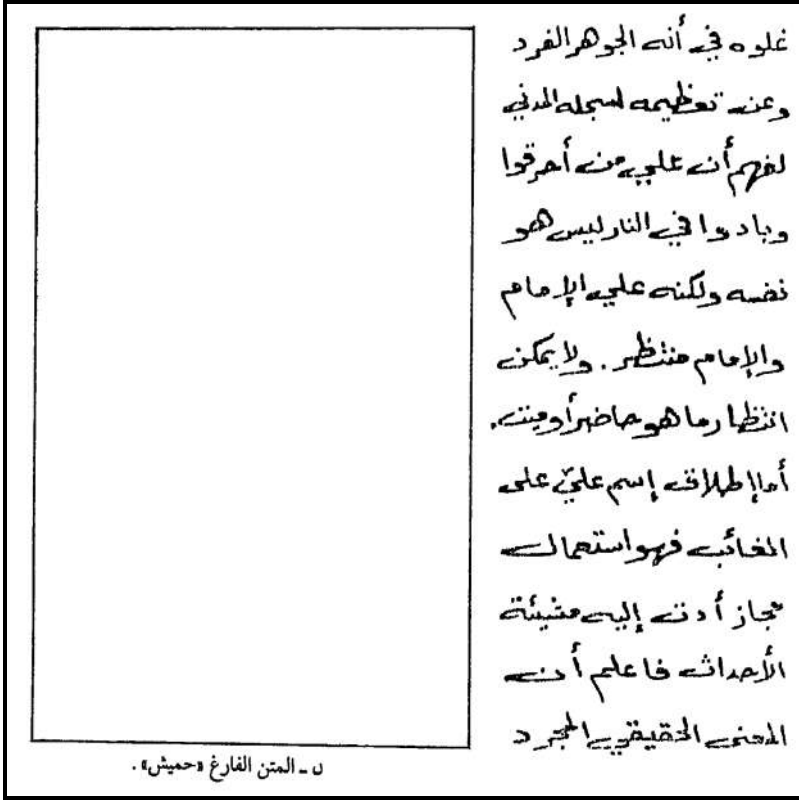 غلوه في أنه الجوهر الفرد
وعن تعظيمه لسجله المدني
لفهم أن علي من أحرقوا
وبادوا في النار ليس هو
نفسه ولكنه علي الإمام
والإمام منتظر. ولا يمكن
انتظار ما هو حاضر أو ميت.
أما إطلاق إسم عليّ على
الغائب فهو استعمال
مجاز أدت إليه مشيئة
الأحداث فاعلم أن
المعنى الحقيقي المجرد
ں - المتن الفارغ «حميش».